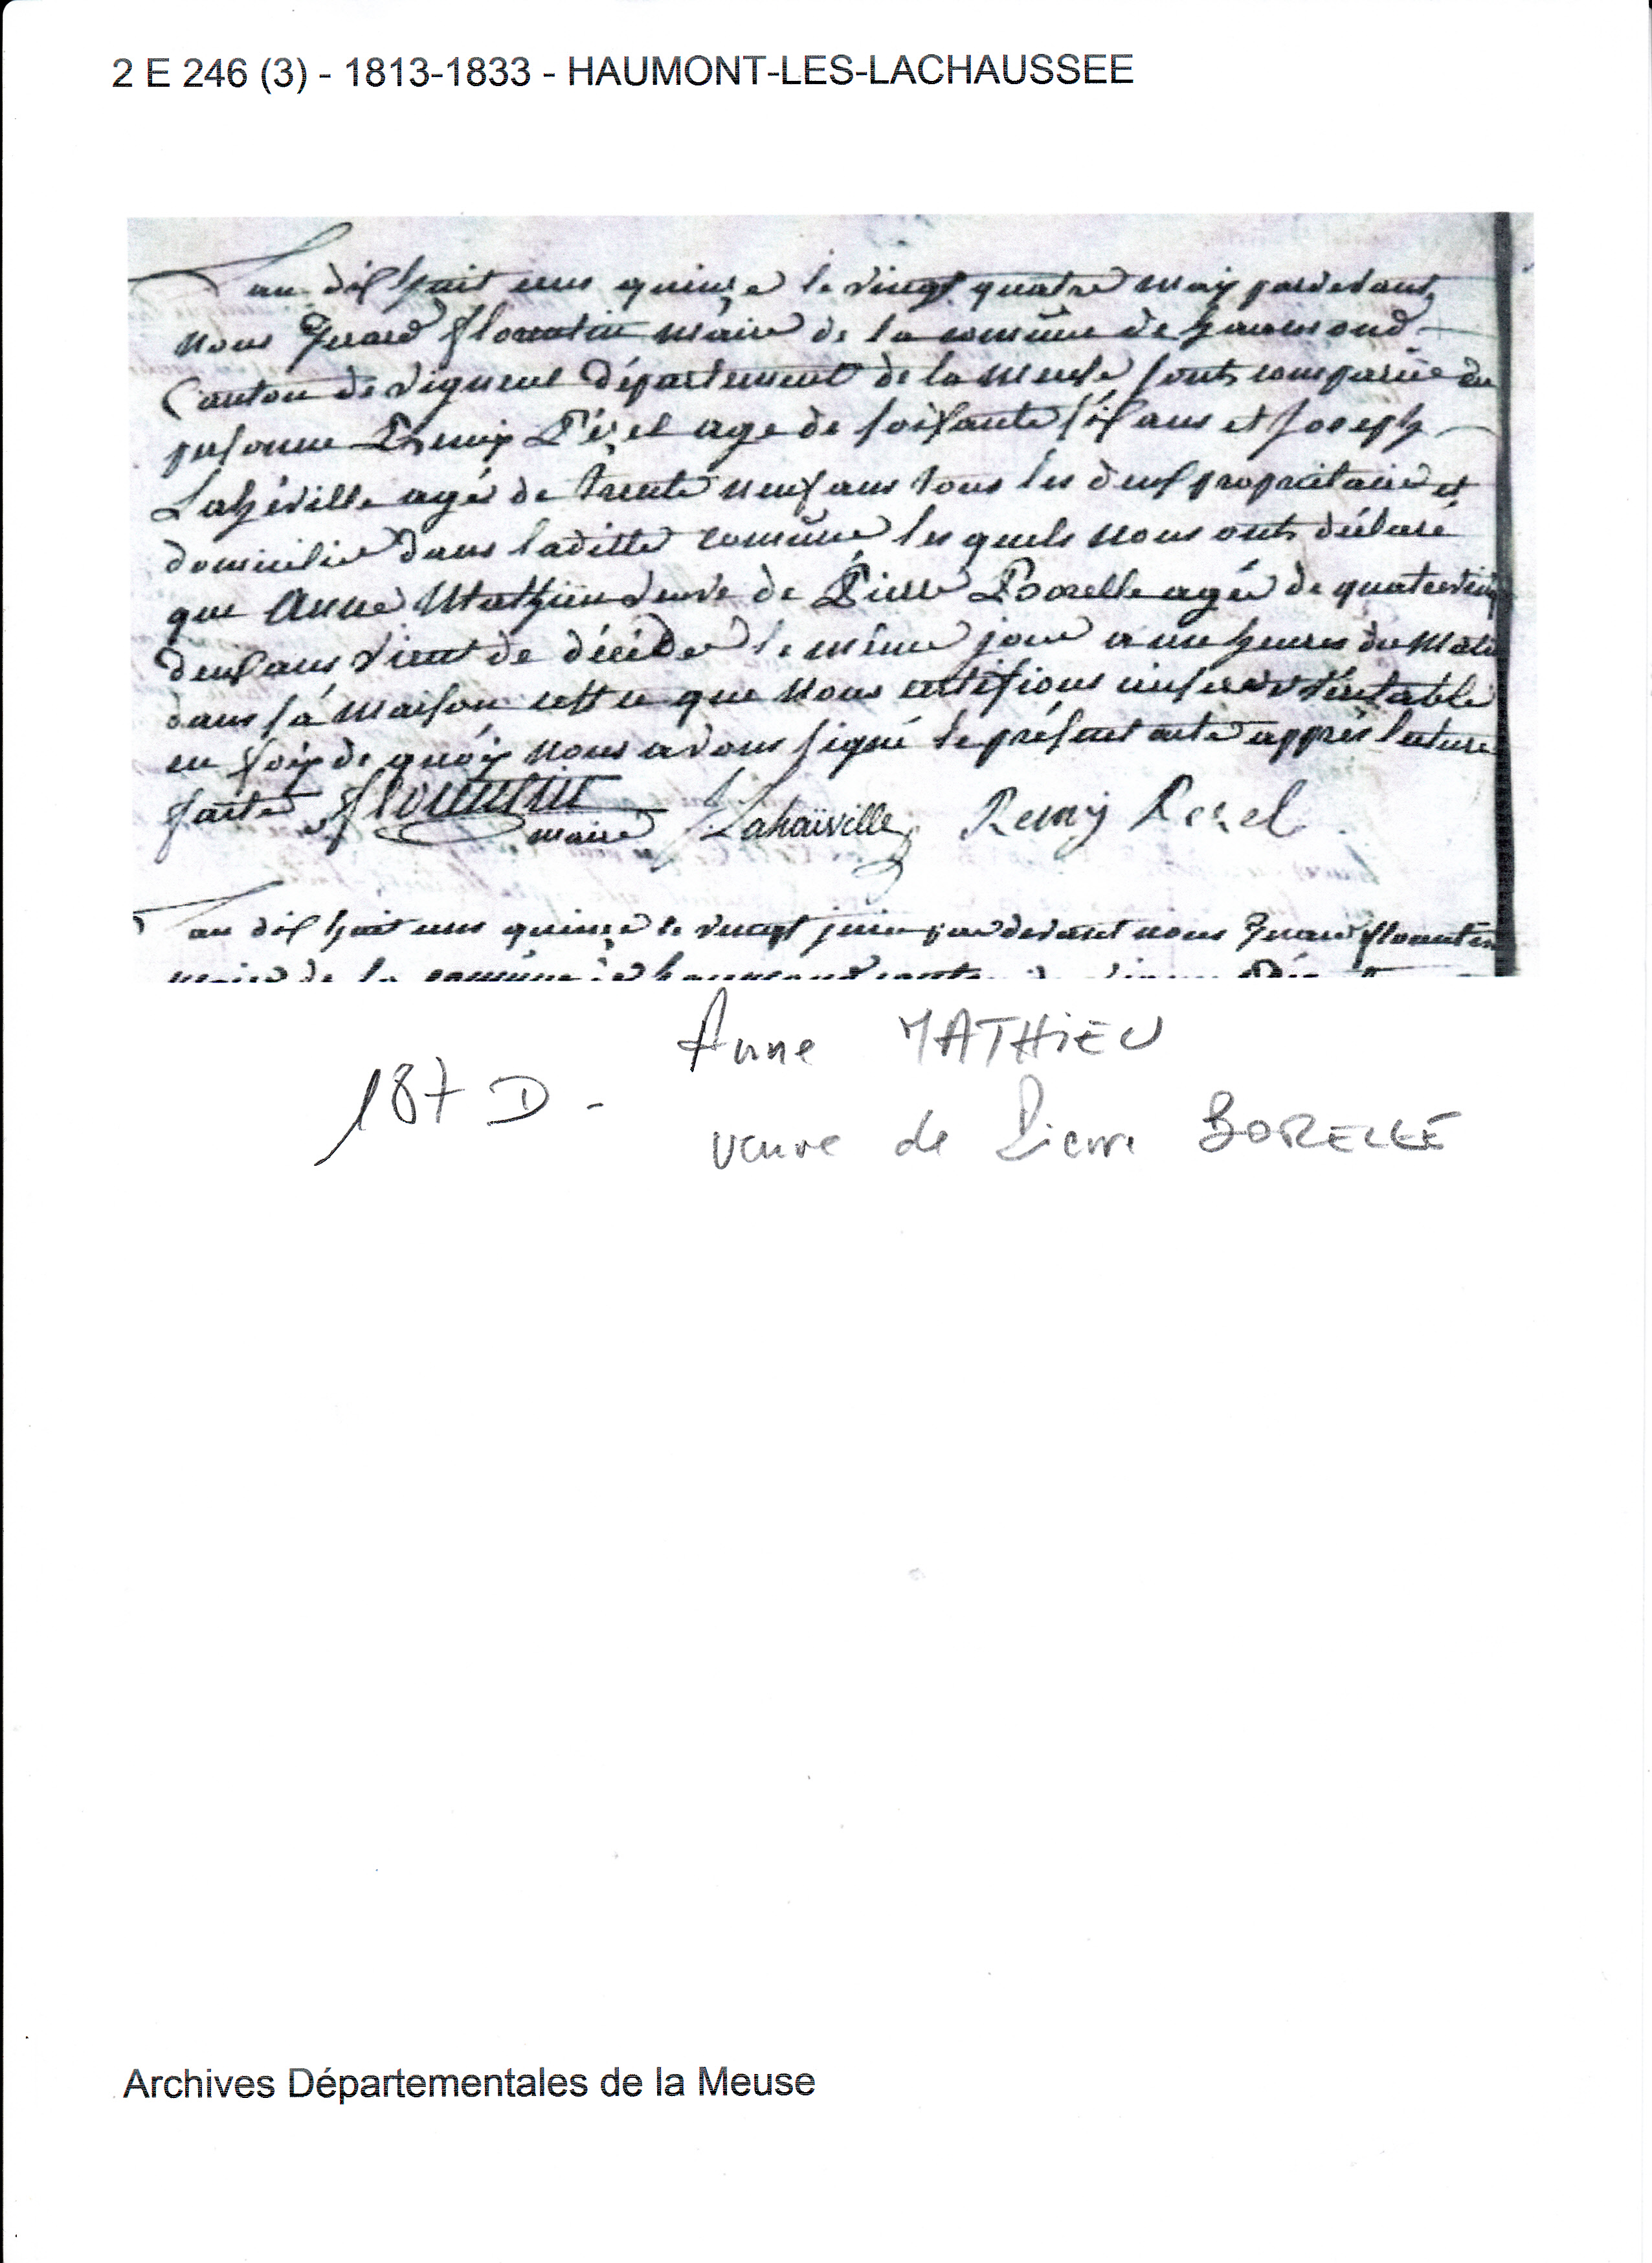 2 E 246 (3) - 1813-1833 - HAUMONT-LES-LACHAUSSEE
L'an dix huit cens quinze le vingt quatre may pardevant
nous Gerard florentin maire de la comune de haumond
Canton de vigneul département de la meuse sont comparüe en
personne Remy Pérel age de soixante six ans et Joseph
Lahéville agé de trente neuf ans tous les deux propriétaire et
domicilie dans laditte comune les quels nous onts déclaré
que Anne Mathieu veuve de Pierre Borelle agée de quatrevingt
deux ans vient de décéder le même jour a une heures du matin
dans sa maison cest ce que nous certifions sincere et véritable
en foix de quoy nous avons signé le présent acte apprès lecture
faite florentin
maire Lahaïville Remy Perel
L'an dix huit cens quinze le vingt juin pardevant nous Gerard florentin
maire de la comune de haumond canton de
Anne MATHIEU
187 D -
veuve de Pierre BORELLE
Archives Départementales de la Meuse